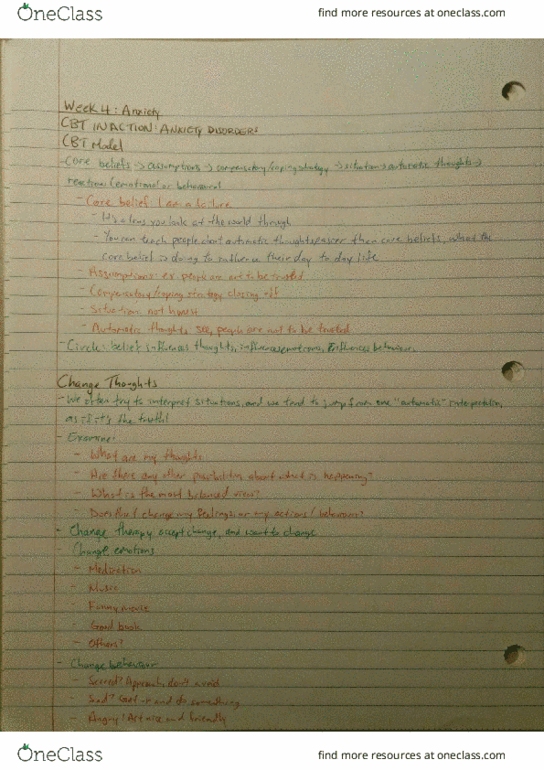 OneClass
find more resources at oneclass.com
Week 4: Anxiety
CBT IN ACTION: ANXIETY DISORDERS
CBT Model
- Core beliefs -> assumptions -> compensatory/coping strategy -> situation -> automatic thoughts ->
reaction (emotional or behavioural
- Core belief: I am a failure
- It's a lens you look at the world through
- You can teach people about automatic thoughts easier then core beliefs, what the
core belief is doing to influence their day to day life
- Assumptions: ex. people are not to be trusted
- Compensatory/coping strategy closing off
- Situation, not honest
- Automatic thoughts see, people are not to be trusted
- Circle: belief influences thoughts, influences emotions, influences behaviour
Change Thoughts
- We often try to interpret situations, and we tend to jump from one "automatic" interpretation,
as if it's the truth!
- Examine:
- What are my thoughts
- Are there any other possibilities about what is happening?
- What is the most balanced view?
- Does this change my feelings or my actions/behaviour?
- Change therapy accept change, and want to change
- Change emotions
- Meditation
- Music
- Funny movie
- Good book
- Others?
- Change behaviour
- Scared? Approach, don't avoid
- Sad? Get up and do something
- Angry? Act nice and friendly
OneClass
find more resources at oneclass.com